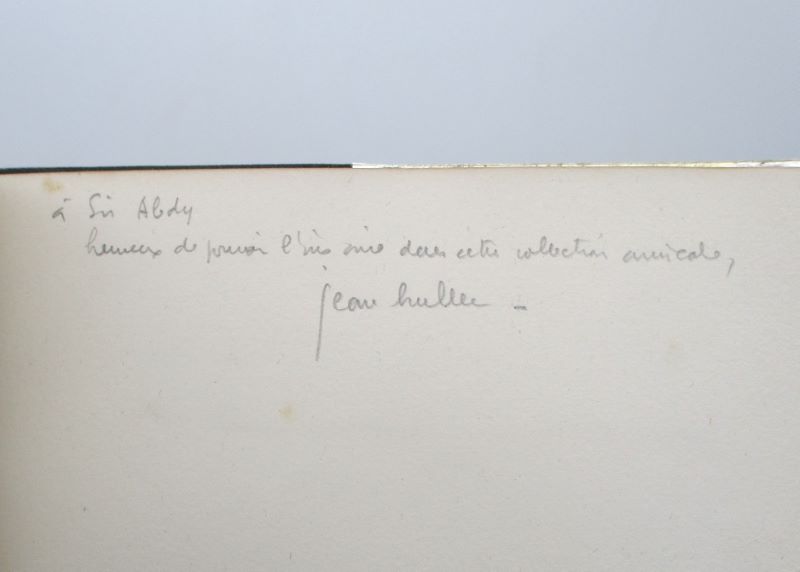 à Sir Abdy
heureux de pouvoir l'inscrire dans cette collection amicale,
jean hu